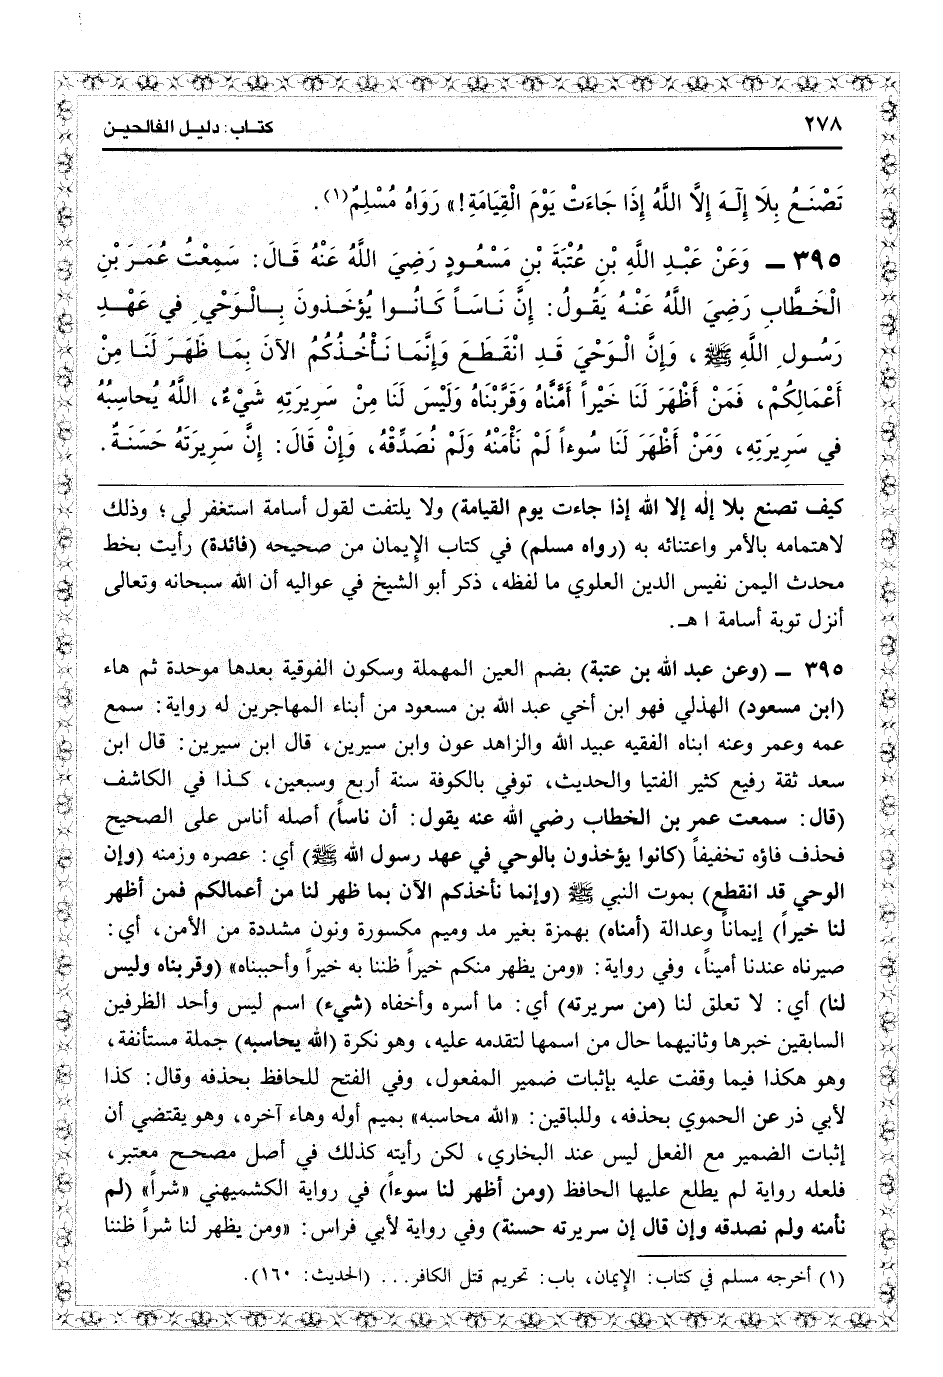 ٢٧٨
كتاب: دليل الفالحين
تَصْنَعُ بِلَا إِلَهَ إِلَّا اللَّهُ إِذَا جَاءَتْ يَوْمَ الْقِيَامَةِ!» رَوَاهُ مُسْلِمٌ(١).
٣٩٥ ــ وَعَنْ عَبْدِ اللَّهِ بْنِ عُتْبَةَ بْنِ مَسْعُودٍ رَضِيَ اللَّهُ عَنْهُ قَالَ: سَمِعْتُ عُمَرَ بْنِ
الْخَطَّابِ رَضِيَ اللَّهُ عَنْهُ يَقُولُ: إِنَّ نَاسَاً كَانُوا يُؤْخَذونَ بِالْوَحْيِ فِي عَهْدِ
رَسُولِ اللَّهِ ﷺ، وَإِنَّ الْوَحْيَ قَدِ انْقَطَعَ وَإِنَّمَا نَأْخُذُكُمُ الآنَ بِمَا ظَهَرَ لَنَا مِنْ
أَعْمَالِكُمْ، فَمَنْ أَظْهَرَ لَنَا خَيْراً أَمَّنَّاهُ وَقَرَّبْنَاهُ وَلَيْسَ لَنَا مِنْ سَرِيرَتِهِ شَيْءٌ، اللَّهُ يُحاسِبُهُ
في سَرِيرَتِهِ، وَمَنْ أَظْهَرَ لَنَا سُوءاً لَمْ نَأْمَنْهُ وَلَمْ نُصَدِّقْهُ، وَإِنْ قَالَ: إِنَّ سَرِيرَتَهُ حَسَنَةٌ.
كيف تصنع بلا إله إلا الله إذا جاءت يوم القيامة) ولا يلتفت لقول أسامة استغفر لي؛ وذلك
لاهتمامه بالأمر واعتنائه به (رواه مسلم) في كتاب الإيمان من صحيحه (فائدة) رأيت بخط
محدث اليمن نفيس الدين العلوي ما لفظه، ذكر أبو الشيخ في عواليه أن الله سبحانه وتعالى
أنزل توبة أسامة اهـ.
٣٩٥ ــ (وعن عبد الله بن عتبة) بضم العين المهملة وسكون الفوقية بعدها موحدة ثم هاء
(ابن مسعود) الهذلي فهو ابن أخي عبد الله بن مسعود من أبناء المهاجرين له رواية: سمع
عمه وعمر وعنه ابناه الفقيه عبيد الله والزاهد عون وابن سيرين، قال ابن سيرين: قال ابن
سعد ثقة رفيع كثير الفتيا والحديث، توفي بالكوفة سنة أربع وسبعين، كذا في الكاشف
(قال: سمعت عمر بن الخطاب رضي الله عنه يقول: أن ناساً) أصله أناس على الصحيح
فحذف فاؤه تخفيفاً (كانوا يؤخذون بالوحي في عهد رسول الله ﷺ) أي: عصره وزمنه (وإن
الوحي قد انقطع) بموت النبي ﷺ (وإنما نأخذكم الآن بما ظهر لنا من أعمالكم فمن أظهر
لنا خيراً) إيماناً وعدالة (أمناه) بهمزة بغير مد وميم مكسورة ونون مشددة من الأمن، أي:
صيرناه عندنا أميناً، وفي رواية: «ومن يظهر منكم خيراً ظننا به خيراً وأحببناه» (وقربناه وليس
لنا) أي: لا تعلق لنا (من سريرته) أي: ما أسره وأخفاه (شيء) اسم ليس وأحد الظرفين
السابقين خبرها وثانيهما حال من اسمها لتقدمه عليه، وهو نكرة (الله يحاسبه) جملة مستأنفة،
وهو هكذا فيما وقفت عليه بإثبات ضمير المفعول، وفي الفتح للحافظ بحذفه وقال: كذا
لأبي ذر عن الحموي بحذفه، وللباقين: «الله محاسبه» بميم أوله وهاء آخره، وهو يقتضي أن
إثبات الضمير مع الفعل ليس عند البخاري، لكن رأيته كذلك في أصل مصحح معتبر،
فلعله رواية لم يطلع عليها الحافظ (ومن أظهر لنا سوءاً) في رواية الكشميهني «شراً» (لم
نأمنه ولم نصدقه وإن قال إن سريرته حسنة) وفي رواية لأبي فراس: «ومن يظهر لنا شراً ظننا
(١) أخرجه مسلم في كتاب: الإيمان، باب: تحريم قتل الكافر... (الحديث: ١٦٠).